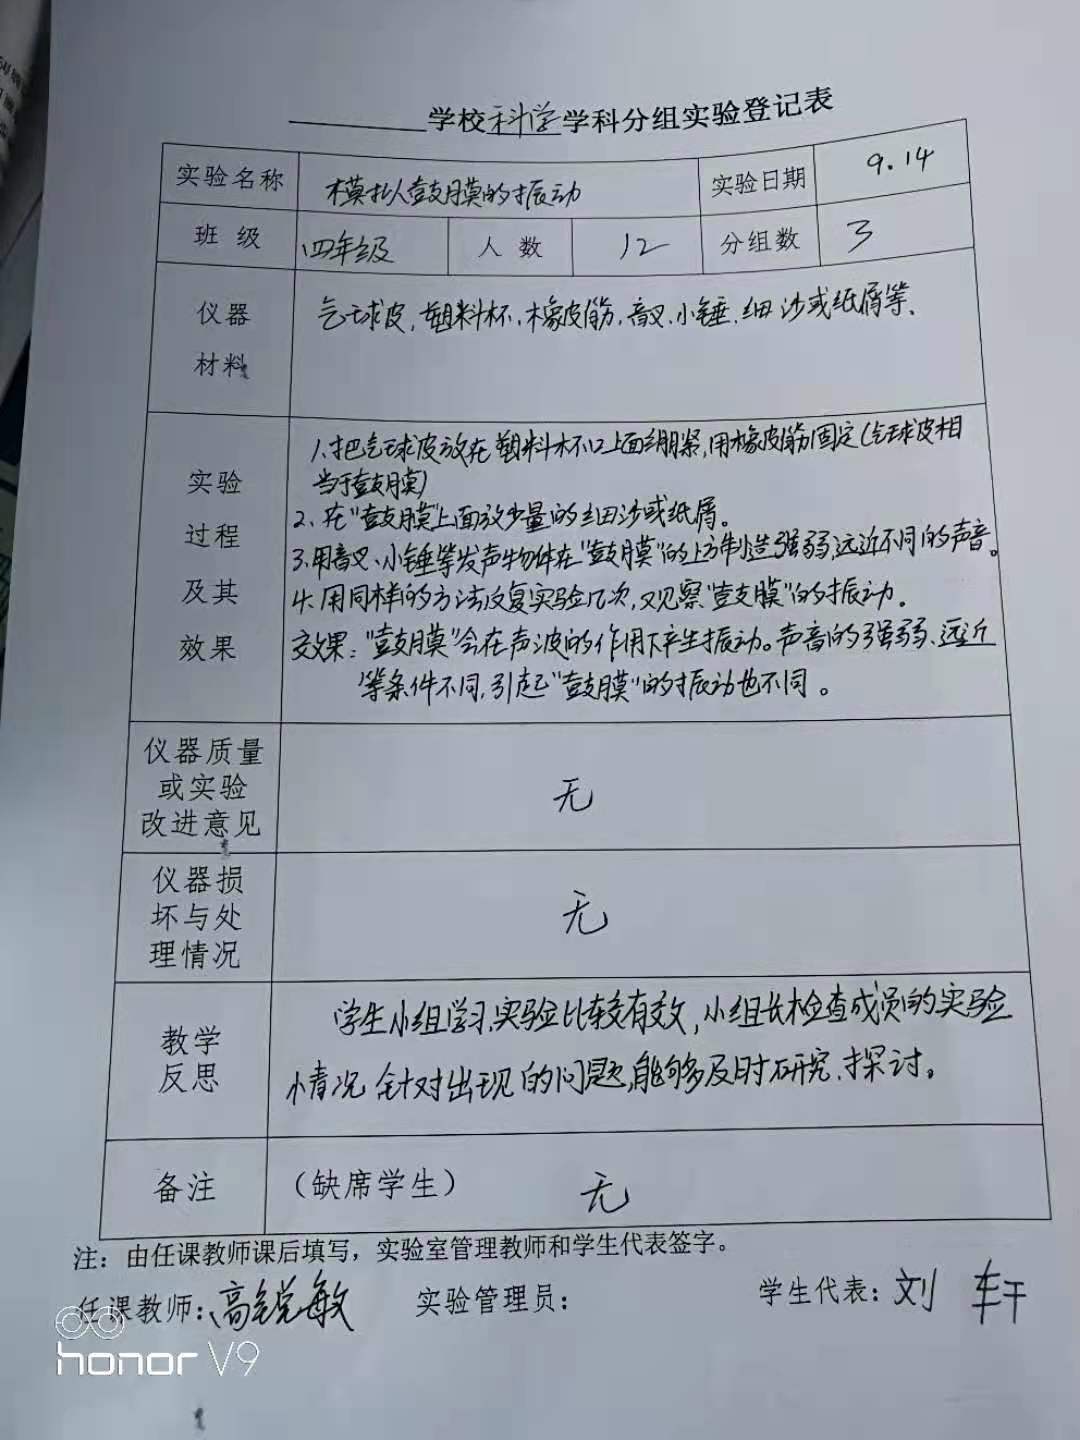 学校科学学科分组实验登记表
实验名称 模拟鼓膜的振动 实验日期 9.14
班级 四年级 人数 12 分组数 3
仪器
材料
气球皮,塑料杯、橡皮筋,音叉、小锤、细沙或纸屑等、
实验
过程
及其
效果
1、把气球皮放在塑料杯口上面绷紧,用橡皮筋固定(气球皮相
当于鼓膜)
2、在"鼓膜"上面放少量的细沙或纸屑。
3、用音叉、小锤等发声物体在"鼓膜"的上方制造强弱、远近不同的声音。
4、用同样的方法反复实验几次,观察"鼓膜"的振动。
效果:"鼓膜"会在声波的作用下产生振动。声音的强弱、远近
等条件不同,引起"鼓膜"的振动也不同。
仪器质量
或实验
改进意见
无
仪器损
坏与处
理情况
无
教学
反思
学生小组学习,实验比较有效,小组长检查成员的实验
情况 针对出现的问题,能够及时研究、探讨。
备注 (缺席学生) 无
注:由任课教师课后填写,实验室管理教师和学生代表签字。
任课教师:高锐敏 实验管理员: 学生代表:刘轩
honor V9